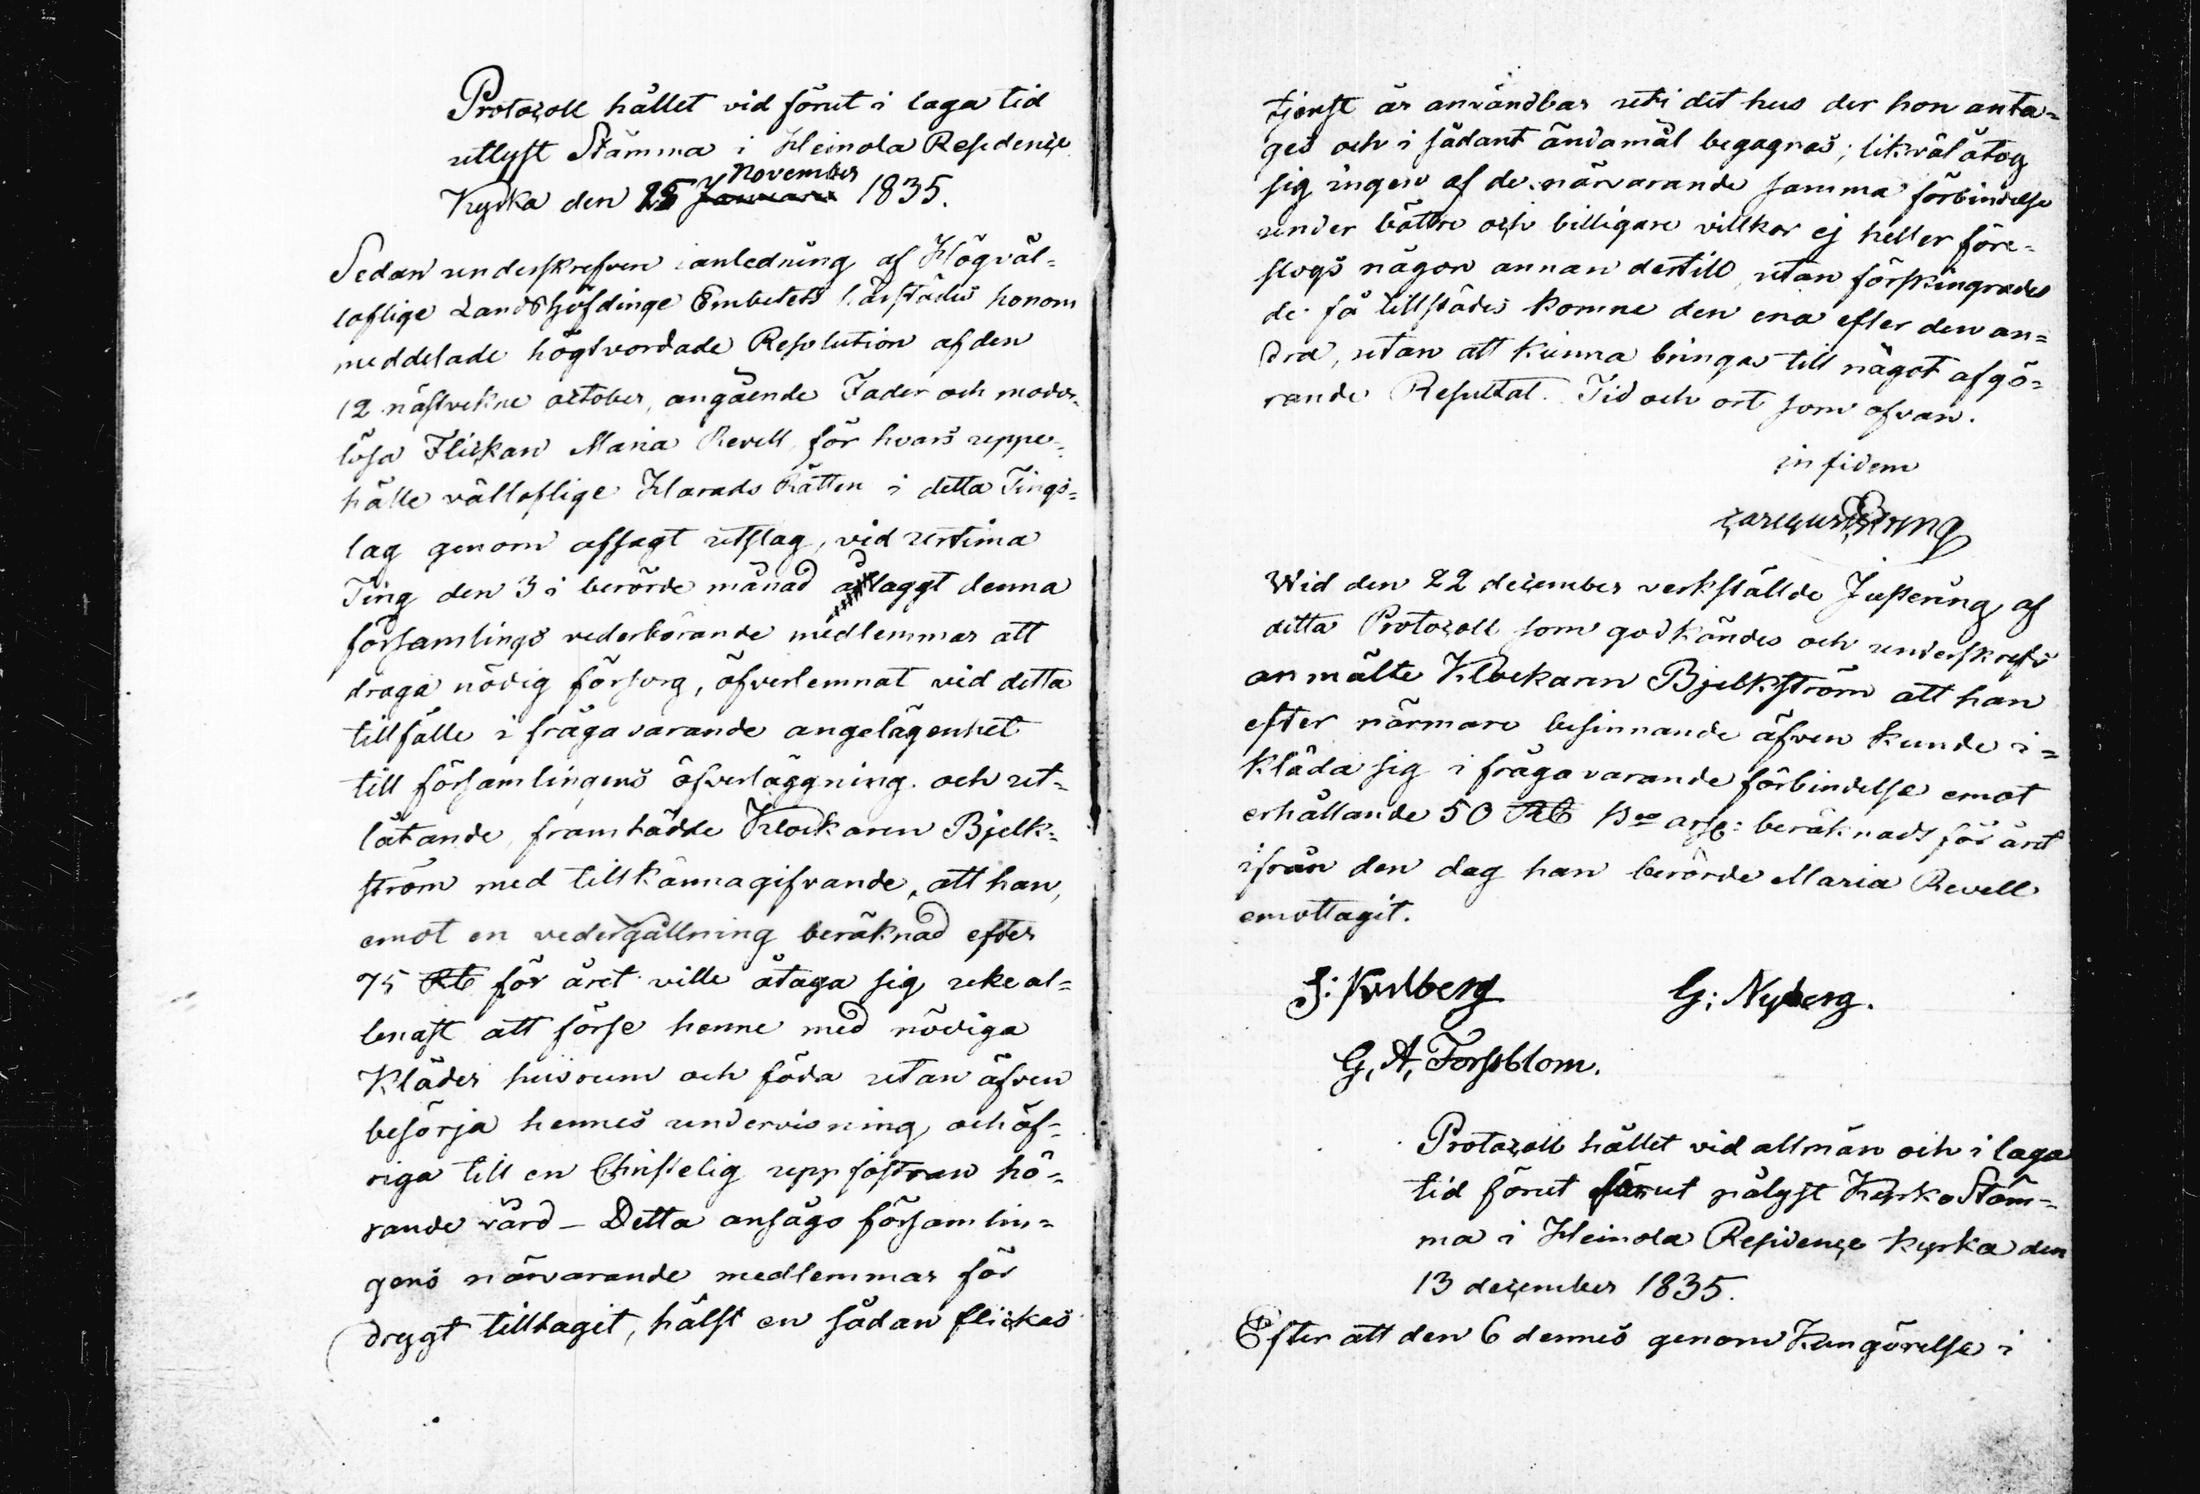 Protocoll hållet vid förut i laga tid
utlyst Stämma i Heinola Residence
Kyrka den 15 November 1835.
Sedan underskrefven i anledning af Högväl=
loflige Landshöfdinge Embetets härstädes honom
meddelade högtvördade Resolution af den
12 nästvekne october, angående Fader och moder=
lösa Flickan Maria Revell, för hvars uppe=
hälle vällloflige Härads Rätten i detta Tings=
lag genom afsagt utslag, vid urtima
Ting den 3 i berörde månad ålaggt denna
församlings vederbörande medlemmar att
draga nödig försorg, öfverlemnat vid detta
tillfälle i fråga varande angelägenhet
till församlingens öfverläggning och ut=
låtande, framträdde Klockaren Bjelk=
ström med tillkännagifvande, att han,
emot en vedergällning beräknad efter
75 Rb för året ville åtaga sig icke al=
lenast att förse henne med nödiga
Kläder husrum och föda utan äfven
besörja hennes undervisning och öf=
riga till en Christelig uppfostran hö=
rande vård – Detta ansågo församlin=
gens närvarande medlemmar för
drygt tilltaget, hälst en sådan flickas
tjenst är användbar uti det hus der hon anta=
ges och i sådant ändamål begagnas; likväl åtog
sig ingen af de närvarande samma förbindelse
under bättre och billigare villkor ej heller före=
slogs någon annan dertill, utan förskingrades
de få tillstädes komne den ena efter den an=
dra, utan att kunna bringas till något afgö=
rande Resultat. Tid och ort som ofvan.
in fidem
Wid den 22 december verkställde Justering af
detta Protocoll som godkändes och underskrefs
anmälte Klockaren Bjelkström att han
efter närmare besinnande äfven kunde i=
kläda sig i frågavarande förbindelse emot
erhållande 50 Rb Bco beräknads för året
ifrån den dag han berörde Maria Revell
emottagit.
G: Nyberg.
G. A. Forsblom.
Protocoll hållet vid allmän och i laga
tid förut förut pålyst Kyrko Stäm=
ma i Heinola Residence kyrka den
13 december 1835.
Efter att den 6 dennes genom Kungörelse i